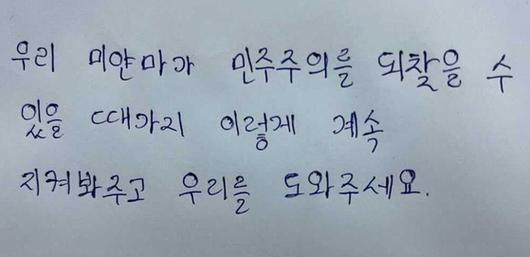 우리 미얀마가 민주주의를 되찾을 수
있을 때가지 이렇게 계속
지켜봐주고 우리를 도와주세요.